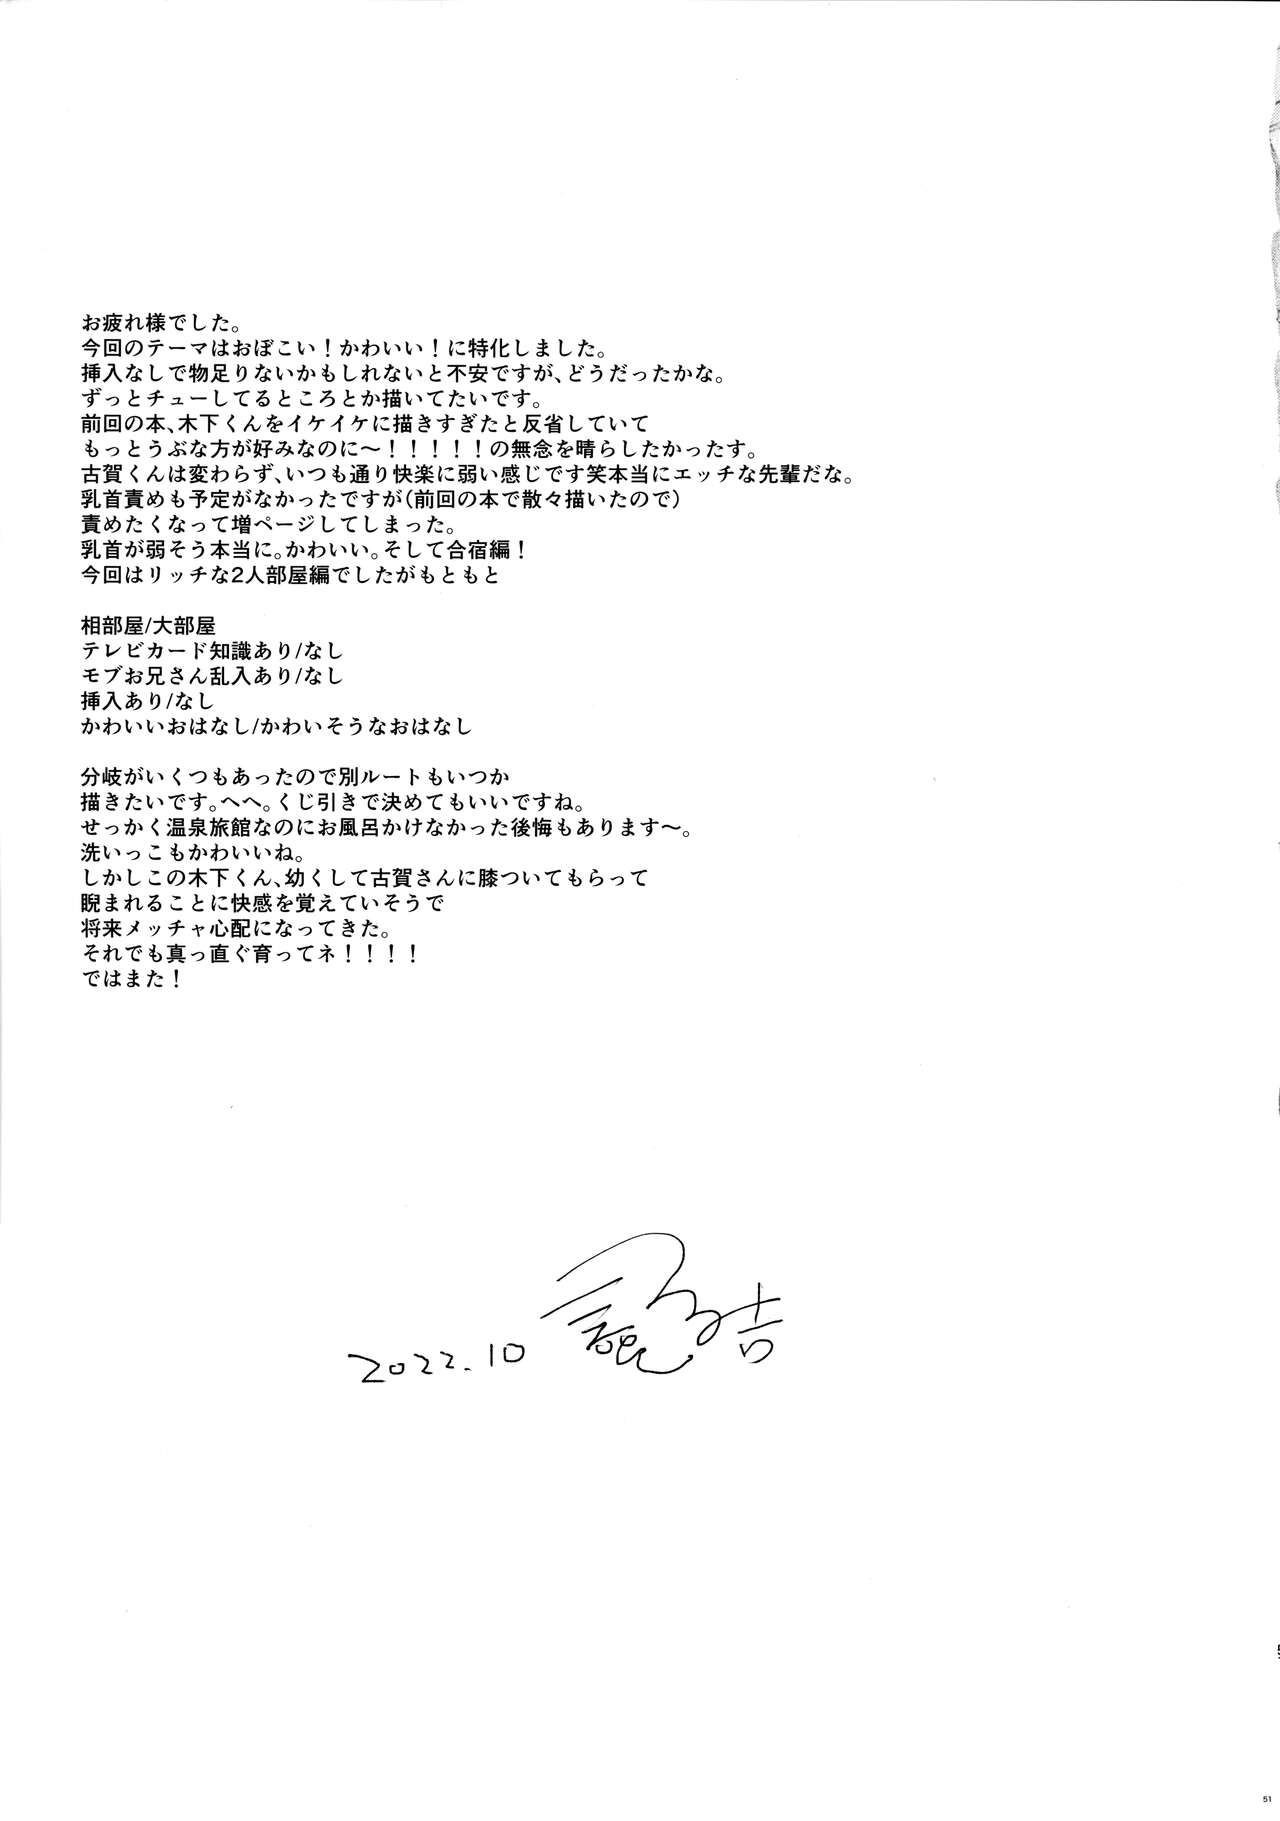 お疲れ様でした。
今回のテーマはおぼこい！かわいい！に特化しました。
挿入なしで物足りないかもしれないと不安ですが、どうだったかな。
ずっとチューしてるところとか描いてたいです。
前回の本、木下くんをイケイケに描きすぎたと反省していて
もっとうぶな方が好みなのに〜！！！！！の無念を晴らしたかったす。
古賀くんは変わらず、いつも通り快楽に弱い感じです笑本当にエッチな先輩だな。
乳首責めも予定がなかったですが（前回の本で散々描いたので）
責めたくなって増ページしてしまった。
乳首が弱そう本当に。かわいい。そして合宿編！
今回はリッチな2人部屋編でしたがもともと
相部屋/大部屋
テレビカード知識あり/なし
モブお兄さん乱入あり/なし
挿入あり/なし
かわいいおはなし/かわいそうなおはなし
分岐がいくつもあったので別ルートもいつか
描きたいです。へへ。くじ引きで決めてもいいですね。
せっかく温泉旅館なのにお風呂かけなかった後悔もあります〜。
洗いっこもかわいいね。
しかしこの木下くん、幼くして古賀さんに膝ついてもらって
睨まれることに快感を覚えていそうで
将来メッチャ心配になってきた。
それでも真っ直ぐ育ってネ！！！！
ではまた！
2022.10
51